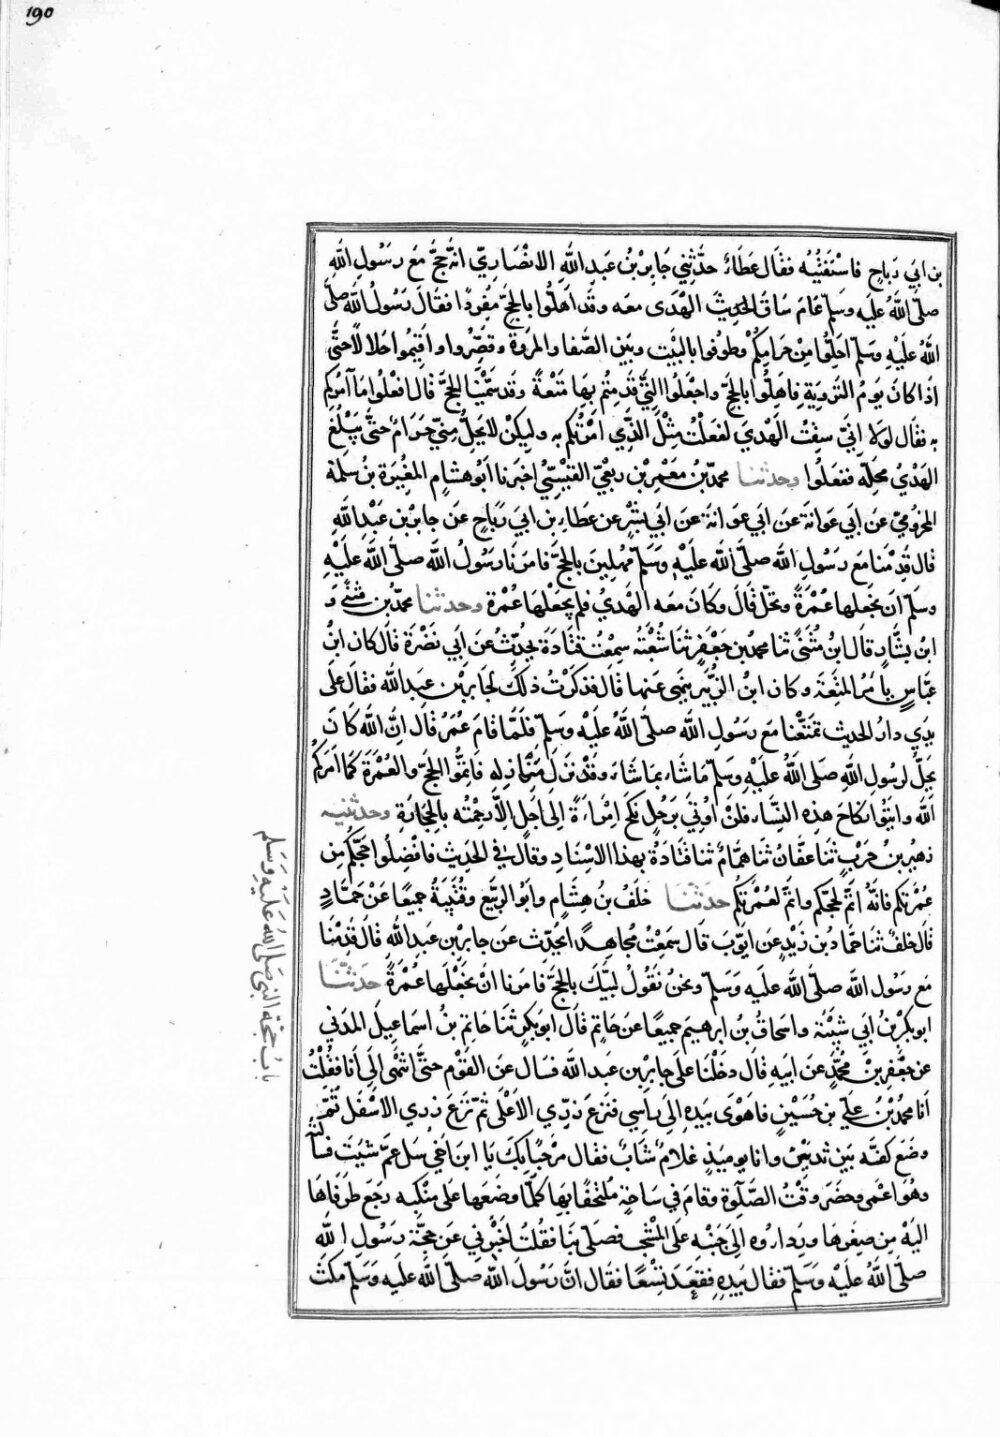 ١٩٥
بن ابي رباح فاستفتيه فقال عطاء حدثني جابر بن عبد الله الانصاري انه حج مع رسول الله
صلى الله عليه وسلم عام ساق الهدى معه وقد اهلوا بالحج مفردا فقال رسول الله صلى
الله عليه وسلم احلوا من حرامكم وطوفوا بالبيت وبين الصفا والمروة وقصروا واقيموا حلالا حتى
اذا كان يوم التروية فاهلوا بالحج واجعلوا التي قدمتم بها متعة وقد سمينا الحج قال افعلوا ما آمركم
به فقال لولا اني سقت الهدي لفعلت مثل الذي امرتكم به ولكن لا يحل مني حرام حتى يبلغ
الهدي محله ففعلوا وحدثنا محمد بن معمر بن ربعي القيسي اخبرنا ابو هشام المغيرة بن سلمة
المخزومي عن ابي عوانة عن ابي عوانة عن ابي بشر عن عطاء بن ابي رباح عن جابر بن عبد الله
قال قدمنا مع رسول الله صلى الله عليه وسلم مهلين بالحج فامرنا رسول الله صلى الله عليه
وسلم ان نجعلها عمرة ونحل قال وكان معه الهدي فلم يجعلها عمرة وحدثنا محمد بن مثنى و
ابن بشار قال ابن مثنى ثنا محمد بن جعفر ثنا شعبة سمعت قتادة يحدث عن ابي نضرة قال كان ابن
عباس يامر بالمتعة وكان ابن الزبير ينهى عنها قال فذكرت ذلك لجابر بن عبد الله فقال على
يدي دار الحديث تمتعنا مع رسول الله صلى الله عليه وسلم فلما قام عمر قال ان الله كان
يحل لرسول الله صلى الله عليه وسلم ما شاء بما شاء وقد نزل منازله فاتموا الحج والعمرة كما امركم
الله وابتوا نكاح هذه النساء فلن اوتي برجل نكح امراءة الى اجل الا رجمته بالحجارة وحدثنيه
زهير بن حرب ثنا عفان ثنا همام ثنا قتادة بهذا الاسناد وقال في الحديث فافصلوا حجكم من
عمرتكم فانه اتم لحجكم واتم لعمرتكم حدثنا خلف بن هشام وابو الربيع وقتيبة جميعا عن حماد
قال خلف ثنا حماد بن زيد عن ايوب قال سمعت مجاهدا يحدث عن جابر بن عبد الله قال قدمنا
مع رسول الله صلى الله عليه وسلم ونحن نقول لبيك بالحج فامرنا ان نجعلها عمرة حدثنا
ابو بكر بن ابي شيبة واسحاق بن ابرهيم جميعا عن حاتم قال ابو بكر ثنا حاتم بن اسماعيل المدني
عن جعفر بن محمد عن ابيه قال دخلنا على جابر بن عبد الله فسال عن القوم حتى انتهى الي انا فقلت
انا محمد بن علي بن حسين فاهوى بيده الى راسي فنزع زري الاعلى ثم نزع زري الاسفل ثم
وضع كفه بين ثديي وانا يوميذ غلام شاب فقال مرحبا بك يا ابن اخي سل عم شيت فسألته
وهو اعمى وحضر وقت الصلوة وقام في ساجة ملتحفا بها كلما وضعها على منكبه رجع طرفاها
اليه من صغرها ورداوه الى جنبه على المشجب فصلى بنا فقلت اخبرني عن حجة رسول الله
صلى الله عليه وسلم فقال بيده فعقد تسعا فقال ان رسول الله صلى الله عليه وسلم مكث
باب حجة النبي صلى الله عليه وسلم